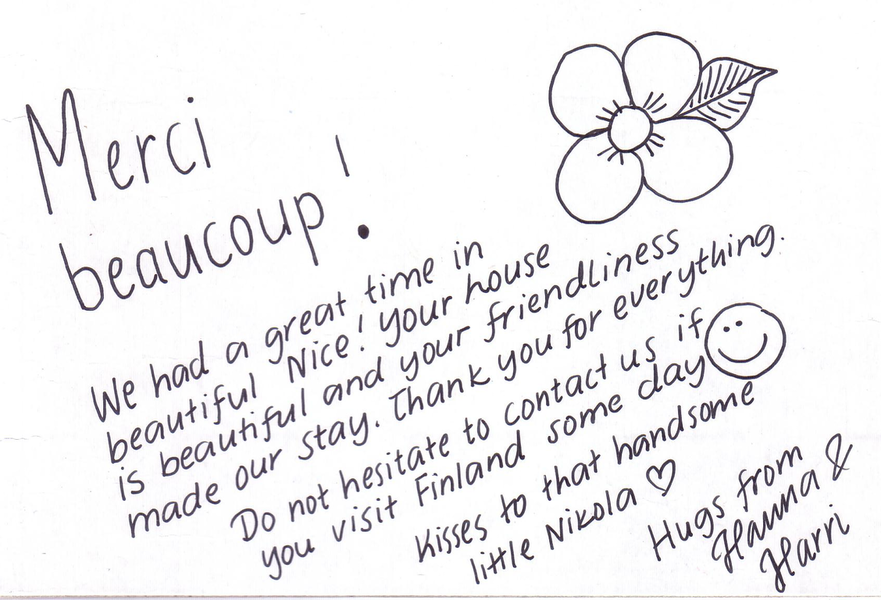 Merci
beaucoup!
We had a great time in
beautiful Nice! Your house
is beautiful and your friendliness
made our stay. Thank you for everything.
Do not hesitate to contact us if
you visit Finland some day
Kisses to that handsome
little Nikola ♡
Hugs from
Hanna &
Harri